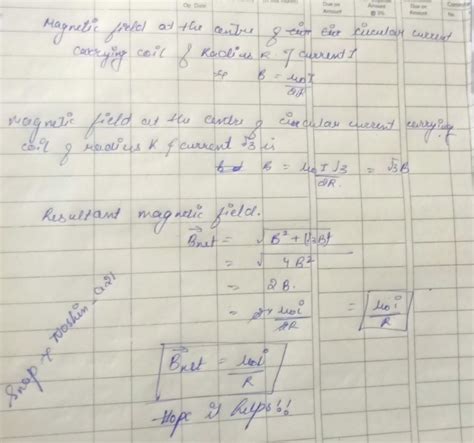 Due on
Amount
@ 5%
Due on
Amount
Magnetic field at the centre of circular current
carrying coil of Radius R & current I
B = μ₀I/2R
magnetic field at the centre of circular current carrying
coil of radius R & current √3 is
B = μ₀I√3/2R = √3B
Resultant magnetic field.
B⃗net = √B²+(√3B)²
= √4B²
= 2B.
= 2×μ₀i/2R = μ₀i/R
B⃗net = μ₀i/R
-Hope it helps!!